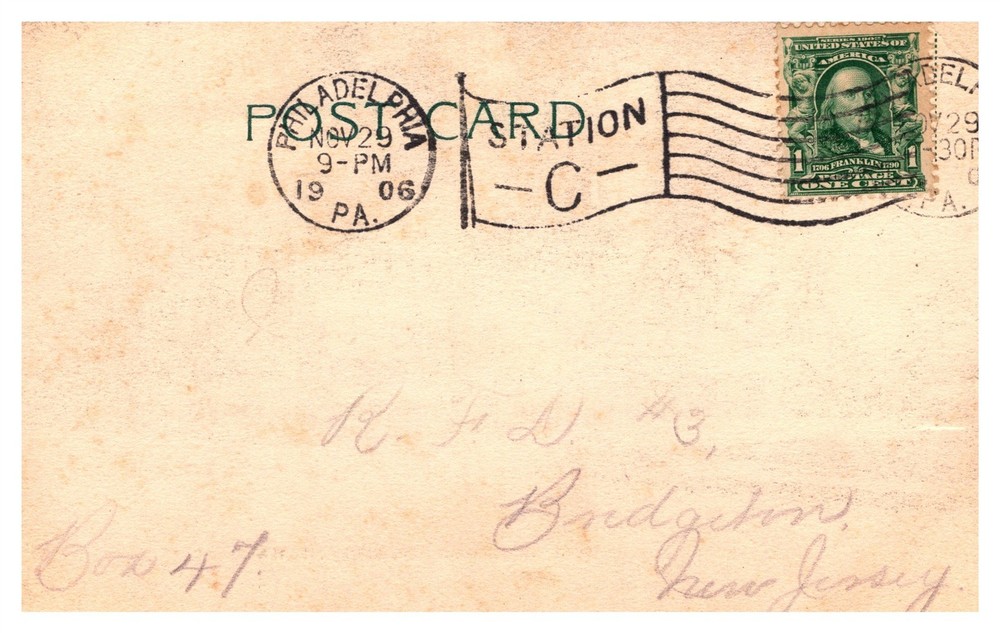 POST CARD
PHILADELPHIA
NOV 29
9-PM
19 06
PA.
STATION
- C -
SERIES 1902
UNITED STATES OF
AMERICA
1 1
1706 FRANKLIN 1790
POSTAGE
ONE CENT
DELP
OV 29
-30
PA.
R. F. D. #3,
Bridgeton,
New Jersey.
Box 47.